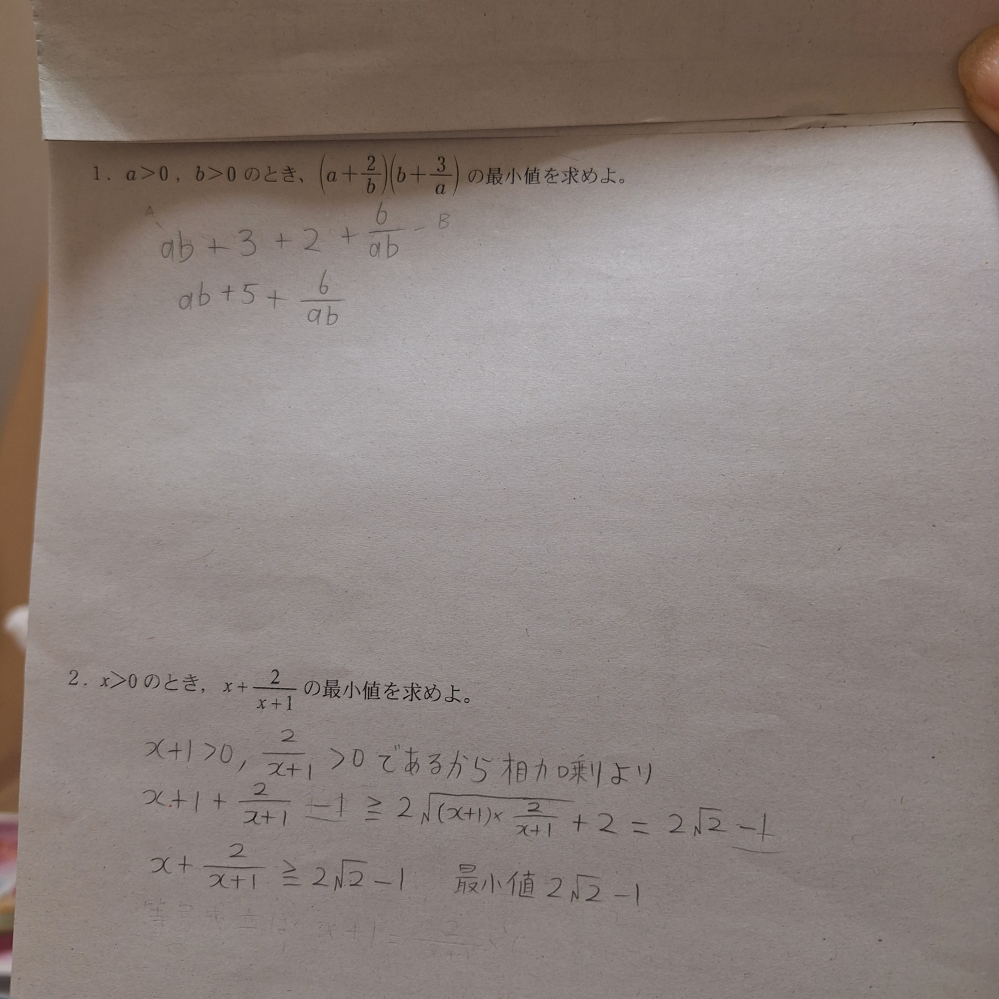 1. a>0, b>0 のとき、(a+2/b)(b+3/a) の最小値を求めよ。
A ab + 3 + 2 + 6/ab - B
ab + 5 + 6/ab
2. x>0 のとき, x+2/(x+1) の最小値を求めよ。
x+1>0, 2/(x+1) >0 であるから 相加乗より
x+1+2/(x+1) -1 ≧ 2√((x+1)× 2/(x+1)) +2 = 2√2 -1
x+2/(x+1) ≧ 2√2-1 最小値 2√2-1
x+1=2/(x+1)